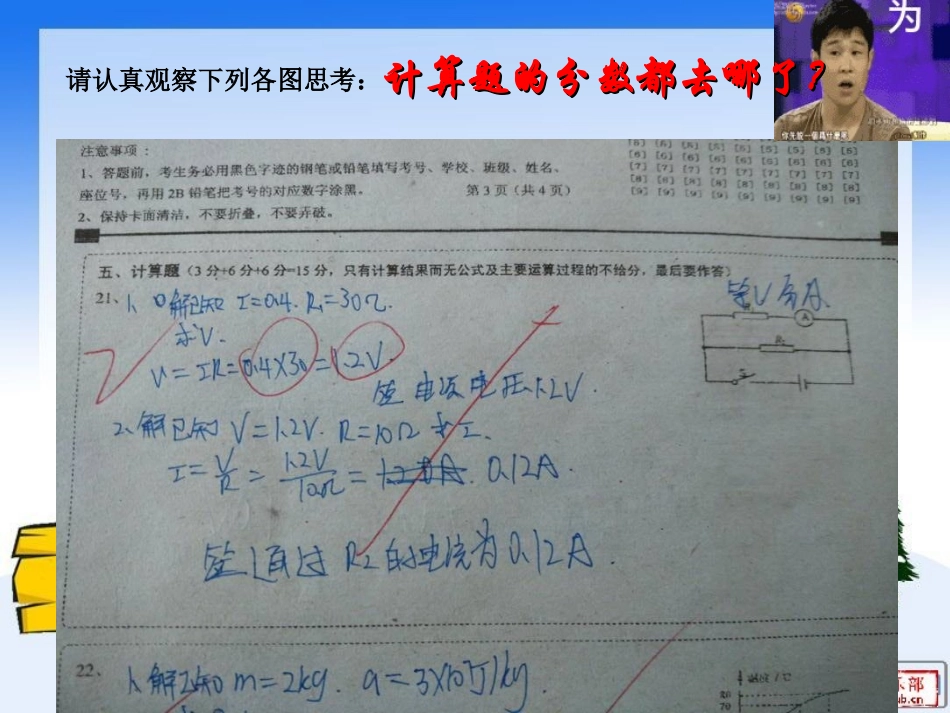 为
请认真观察下列各图思考：计算题的分数都去哪了？
你先说一個為什麼呢
注意事项：
1、答题前，考生务必用黑色字迹的钢笔或铅笔填写考号、学校、班级、姓名、
座位号，再用 2B 铅笔把考号的对应数字涂黑。 第 3 页（共 4 页）
2、保持卡面清洁，不要折叠，不要弄破。
[5] [5] [5] [5] [5] [5] [5] [5]
[6] [6] [6] [6] [6] [6] [6] [6]
[7] [7] [7] [7] [7] [7] [7] [7]
[8] [8] [8] [8] [8] [8] [8] [8]
[9] [9] [9] [9] [9] [9] [9] [9]
五、计算题（3 分+6 分+6 分=15 分，只有计算结果而无公式及主要运算过程的不给分，最后要作答）
21、1、解已知 I=0.4. R₁=30Ω.
求V.
U=IR=0.4X30=1.2V
答 电源电压1.2V.
A
R₂
S
2、解已知 V=1.2V. R=10Ω 求I.
I=V/R=1.2V/10Ω=1.20A. 0.12A.
答 通过 R2 的电流为 0.12A.
22、1、解已知 m=2kg. q=3X10⁷J/kg.
温度/℃
80
70
乐部
ub.cn